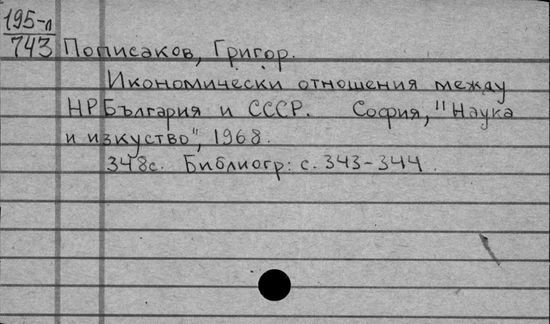 195-л
743
Пописаков, Григор.
Икономически отношения между
НР България и СССР. София, "Наука
и изкуство", 1968.
348с. Библиогр: с. 343-344.